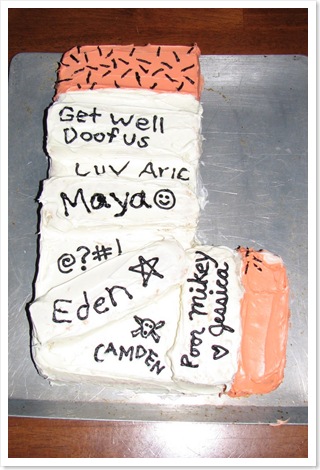 Get Well
Doofus
Luv Aric
Maya
@?#!
Eden
CAMDEN
Poor Mikey
Jessica